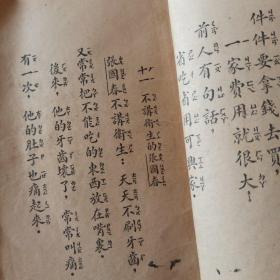 件件要拿錢去買，
一家費用就很大。
前人有句話，
省吃省用可興家
十一 不講衛生的張國春
張國春不講衛生：天天不刷牙齒，
又常常把不能吃的東西放在嘴裏。
後來，他的牙齒壞了，常常叫痛
有一次，他的肚子也痛起來。